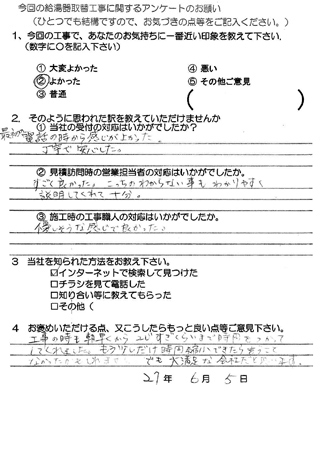 今回の給湯器取替工事に関するアンケートのお願い
(ひとつでも結構ですので、お気づきの点等をご記入ください。)
1、今回の工事で、あなたのお気持ちに一番近い印象を教えて下さい.
(数字に○を記入下さい)
① 大変よかった
④ 悪い
② よかった
⑤ その他ご意見
③ 普通
( )
2. そのように思われた訳を教えていただけませんか
① 当社の受付の対応はいかがでしたか?
最初の電話の時から感じがよかった。
丁寧で安心した。
② 見積訪問時の営業担当者の対応はいかがでしたか。
すごく良かった。こっちがわからない事もわかりやすく
説明してくれて十分。
③ 施工時の工事職人の対応はいかがでしたか。
優しそうな感じで良かった。
3 当社を知られた方法をお教え下さい。
☑インターネットで検索して見つけた
□チラシを見て電話した
□知り合い等に教えてもらった
□その他(
4 お褒めいただける点、又こうしたらもっと良い点等ご意見下さい。
工事の時も朝早くから
してくれました。もう少しだけ時間
でも大満足な
27年 6月 5日